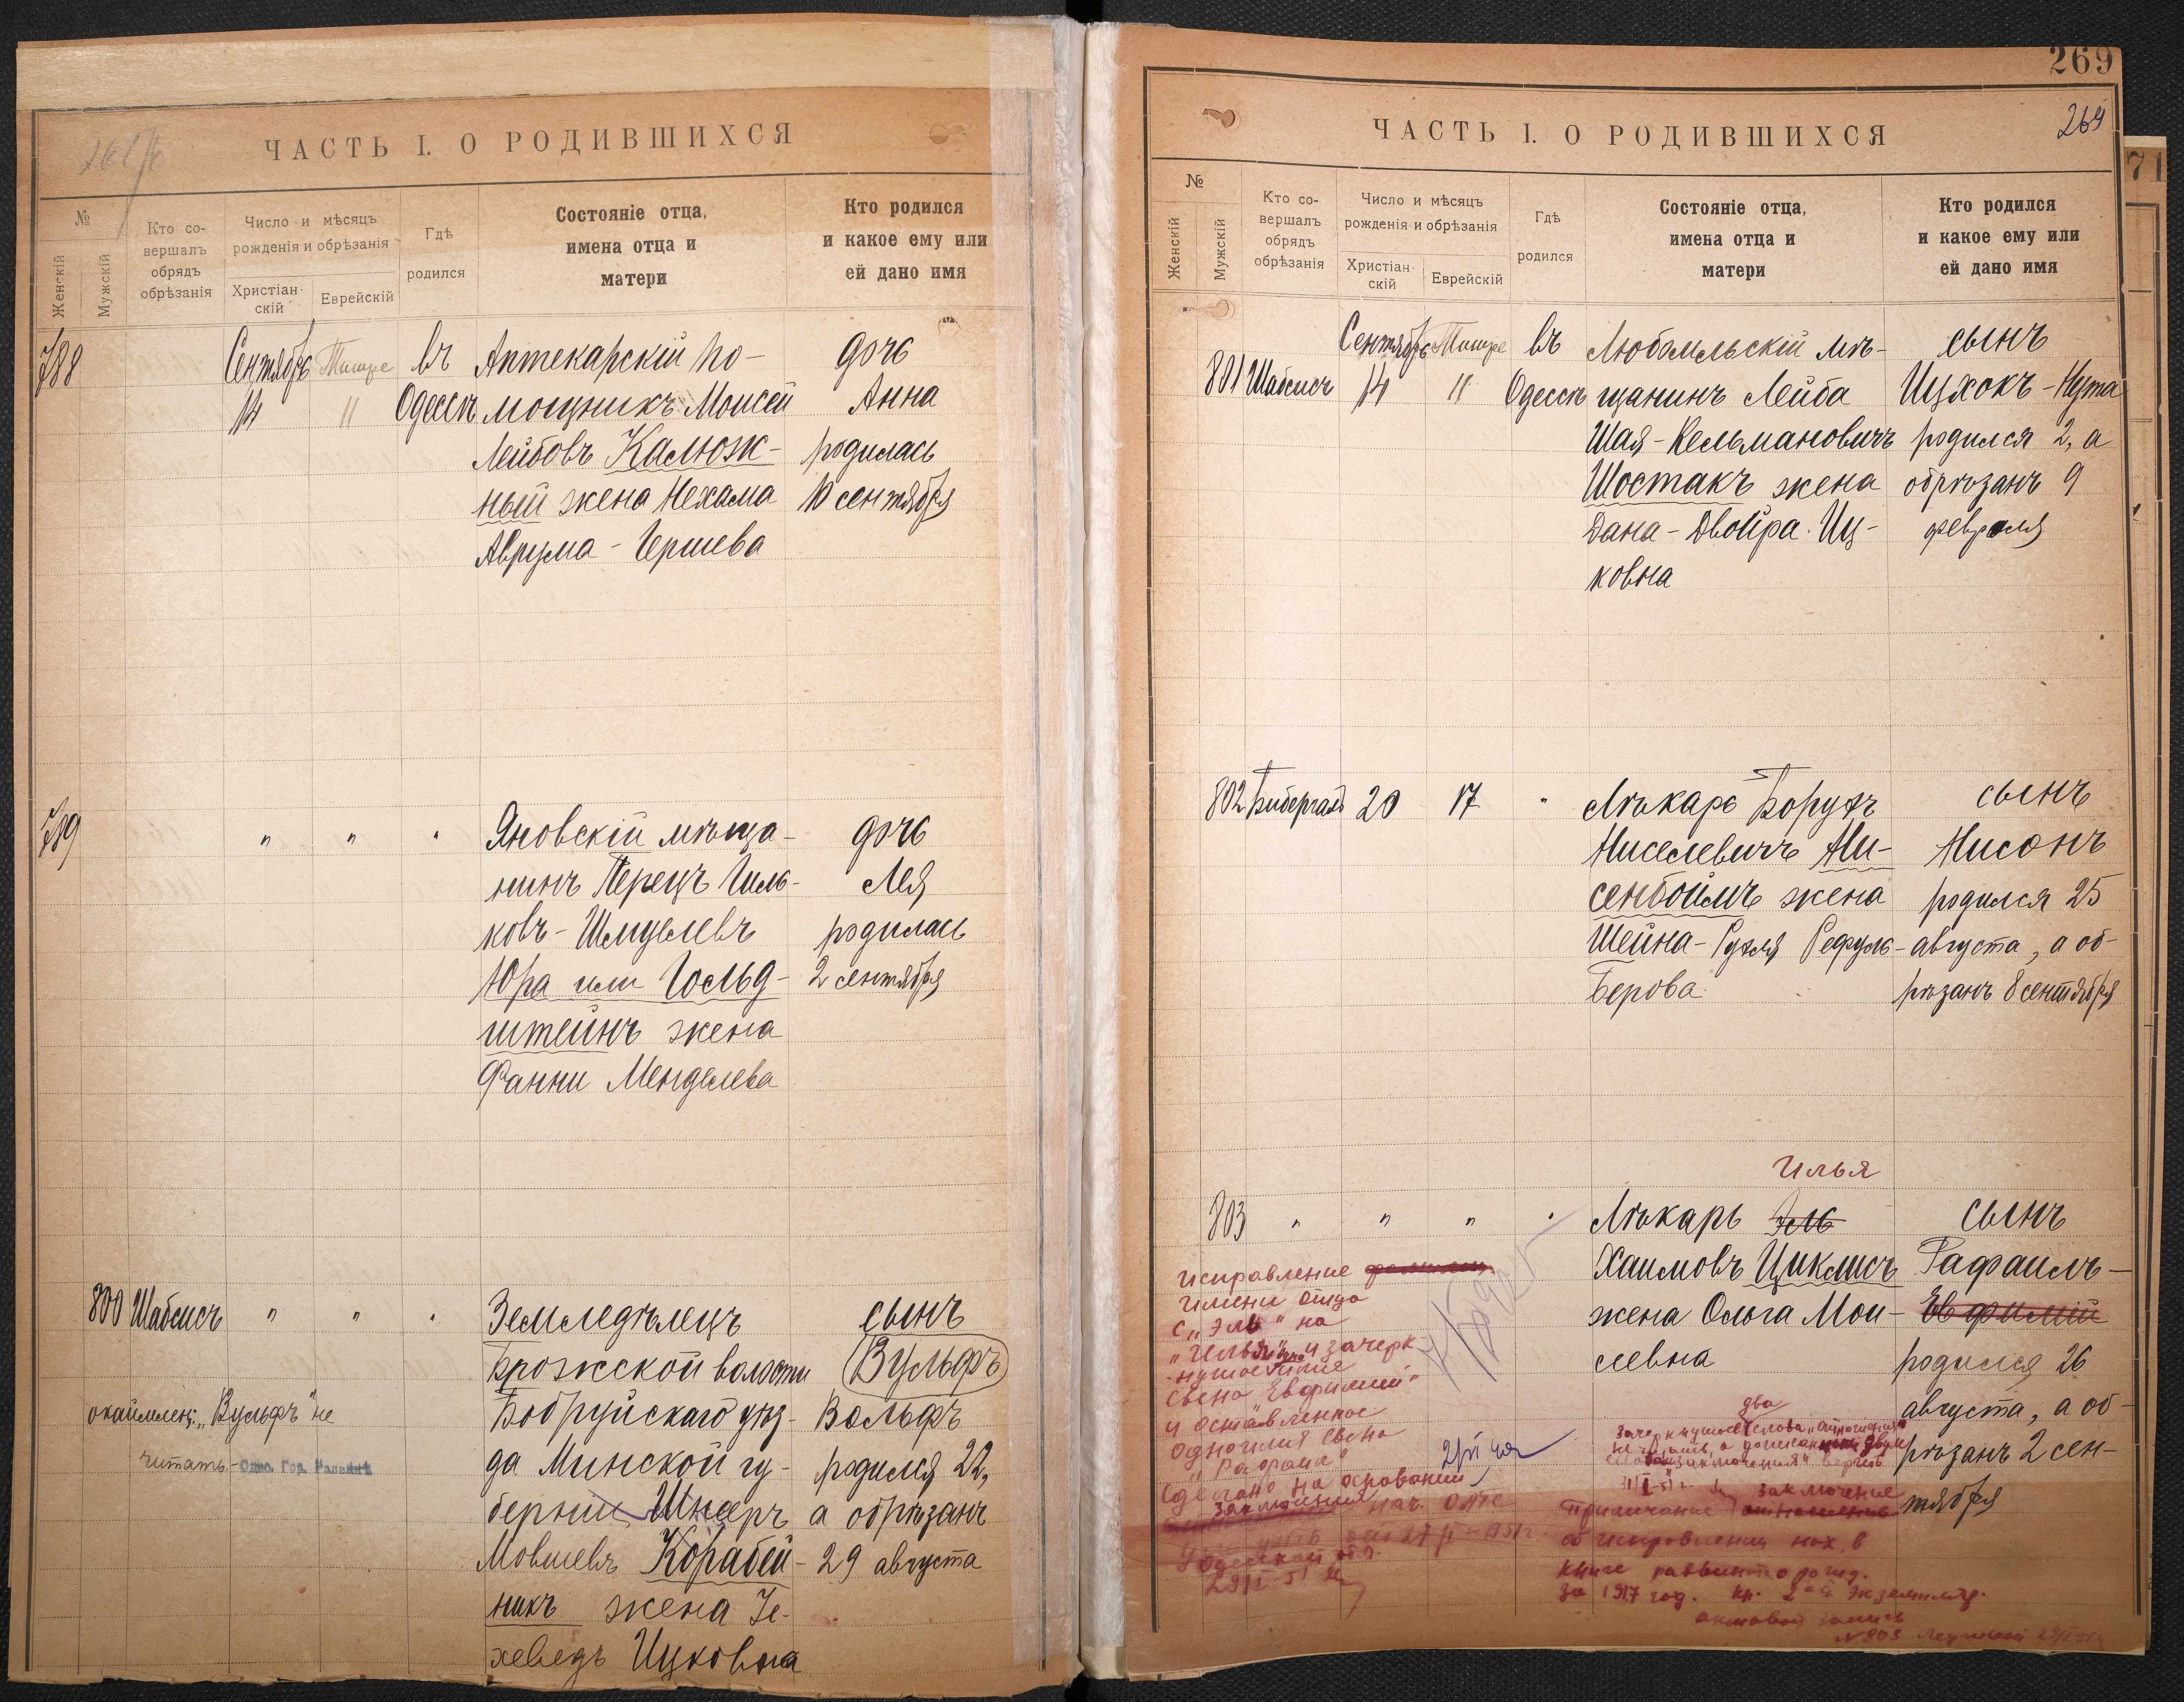 ЧАСТЬ I. О РОДИВШИХСЯ
№
Женскій
Мужскій
Кто со-
вершалъ
обрядъ
обрѣзанія
Число и мѣсяцъ
рожденія и обрѣзанія
Христіан-
скій
Еврейскій
Гдѣ
родился
Состояніе отца,
имена отца и
матери
Кто родился
и какое ему или
ей дано имя
788
Сентябрь
14
Тишре
11
въ
Одессѣ
Аптекарскій по-
мощникъ Моисей
Лейбовъ Калюж-
ный жена Нехама
Аврума-Гершева
дочь
Анна
родилась
10 сентября
789
" " "
Яновскій мѣща-
нинъ Перецъ Гиль-
ковъ-Шмулевъ
Юра или Гольд-
штейнъ жена
Фанни Менделева
дочь
Лея
родилась
2 сентября
800 Шабсисъ " " "
Земледѣлецъ
Брожской волости
Бобруйскаго уѣз-
да Минской гу-
берніи Шнеръ
Мовшевъ Корабей-
никъ жена Іе-
хеведъ Ицковна
сынъ
Вульфъ
Вольфъ
родился 22,
а обрѣзанъ
29 августа
окаймлен: „Вульфъ" не
читать.- Одес. Гор. Раввинъ
269
269
ЧАСТЬ I. О РОДИВШИХСЯ
№
Женскій
Мужскій
Кто со-
вершалъ
обрядъ
обрѣзанія
Число и мѣсяцъ
рожденія и обрѣзанія
Христіан-
скій
Еврейскій
Гдѣ
родился
Состояніе отца,
имена отца и
матери
Кто родился
и какое ему или
ей дано имя
71
801 Шабсисъ
Сентябрь
14
Тишре
11
въ
Одессѣ
Любомльскій мѣ-
щанинъ Лейба
Шая-Кельмановичъ
Шостакъ жена
Дана-Двойра Иц-
ковна
сынъ
Ицхокъ-Нута
родился 2, а
обрѣзанъ 9
февраля
802 Бибергалъ 20 17 "
Лѣкарь Борухъ
Ниселевичъ Ни-
сенбоймъ жена
Шейна-Рухля Рефуль-
Берова
сынъ
Нисонъ
родился 25
августа, а об-
рѣзанъ 8 сентября
Илья
803 " " " "
Лѣкарь Эль
Хаимовъ Циклисъ
жена Ольга Мои-
сеевна
сынъ
Рафаилъ-
Евфимій
родился 26
августа, а об-
рѣзанъ 2 сен-
тября
исправление
имени отца
с „Эль" на
„Илья" и зачерк-
нутое имя
сына Евфимий"
и оставленное
одно имя сына
„Рафаил"
сделано на основании
заключения нач. ОАГС
29/I-51
два
заключение
Примечание
об исправлении нах. в
книге раввината о рожд.
за 1917 год. 2ой экземпляр
актовой записи
№ 803